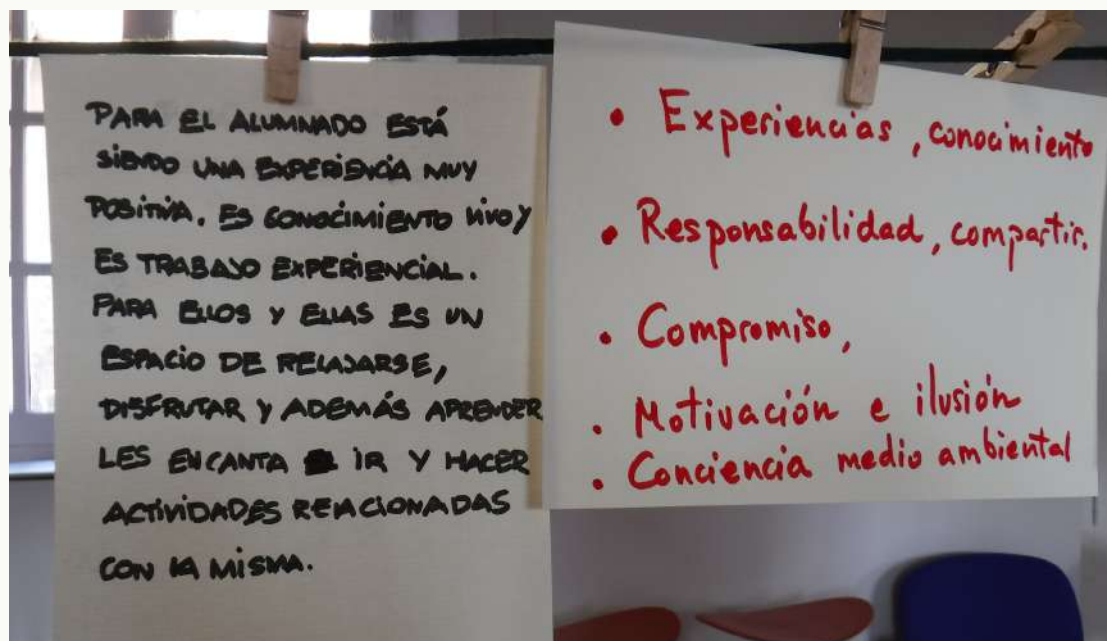 PARA EL ALUMNADO ESTÁ
SIENDO UNA EXPERIENCIA MUY
POSITIVA. ES CONOCIMIENTO VIVO Y
ES TRABAJO EXPERIENCIAL.
PARA ELLOS Y ELLAS ES UN
ESPACIO DE RELAJARSE,
DISFRUTAR Y ADEMÁS APRENDER
LES ENCANTA IR Y HACER
ACTIVIDADES RELACIONADAS
CON LA MISMA.
• Experiencias, conocimiento
• Responsabilidad, compartir.
• Compromiso,
• Motivación e ilusión
• Conciencia medio ambiental